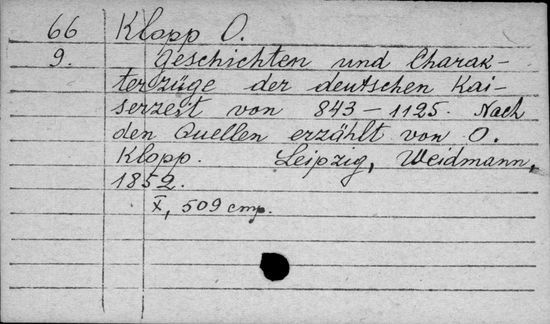 66 Klopp O.
9. Geschichten und Charak-
terzüge der deutschen Kai-
serzeit von 843 - 1125. Nach
den Quellen erzählt von O.
Klopp. Leipzig, Weidmann,
1852.
X, 509 стр.